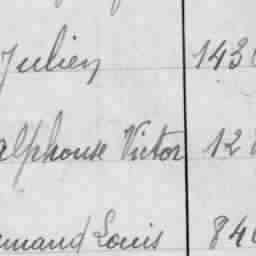 Julien 143
alphonse Victor 12
mand Louis 84